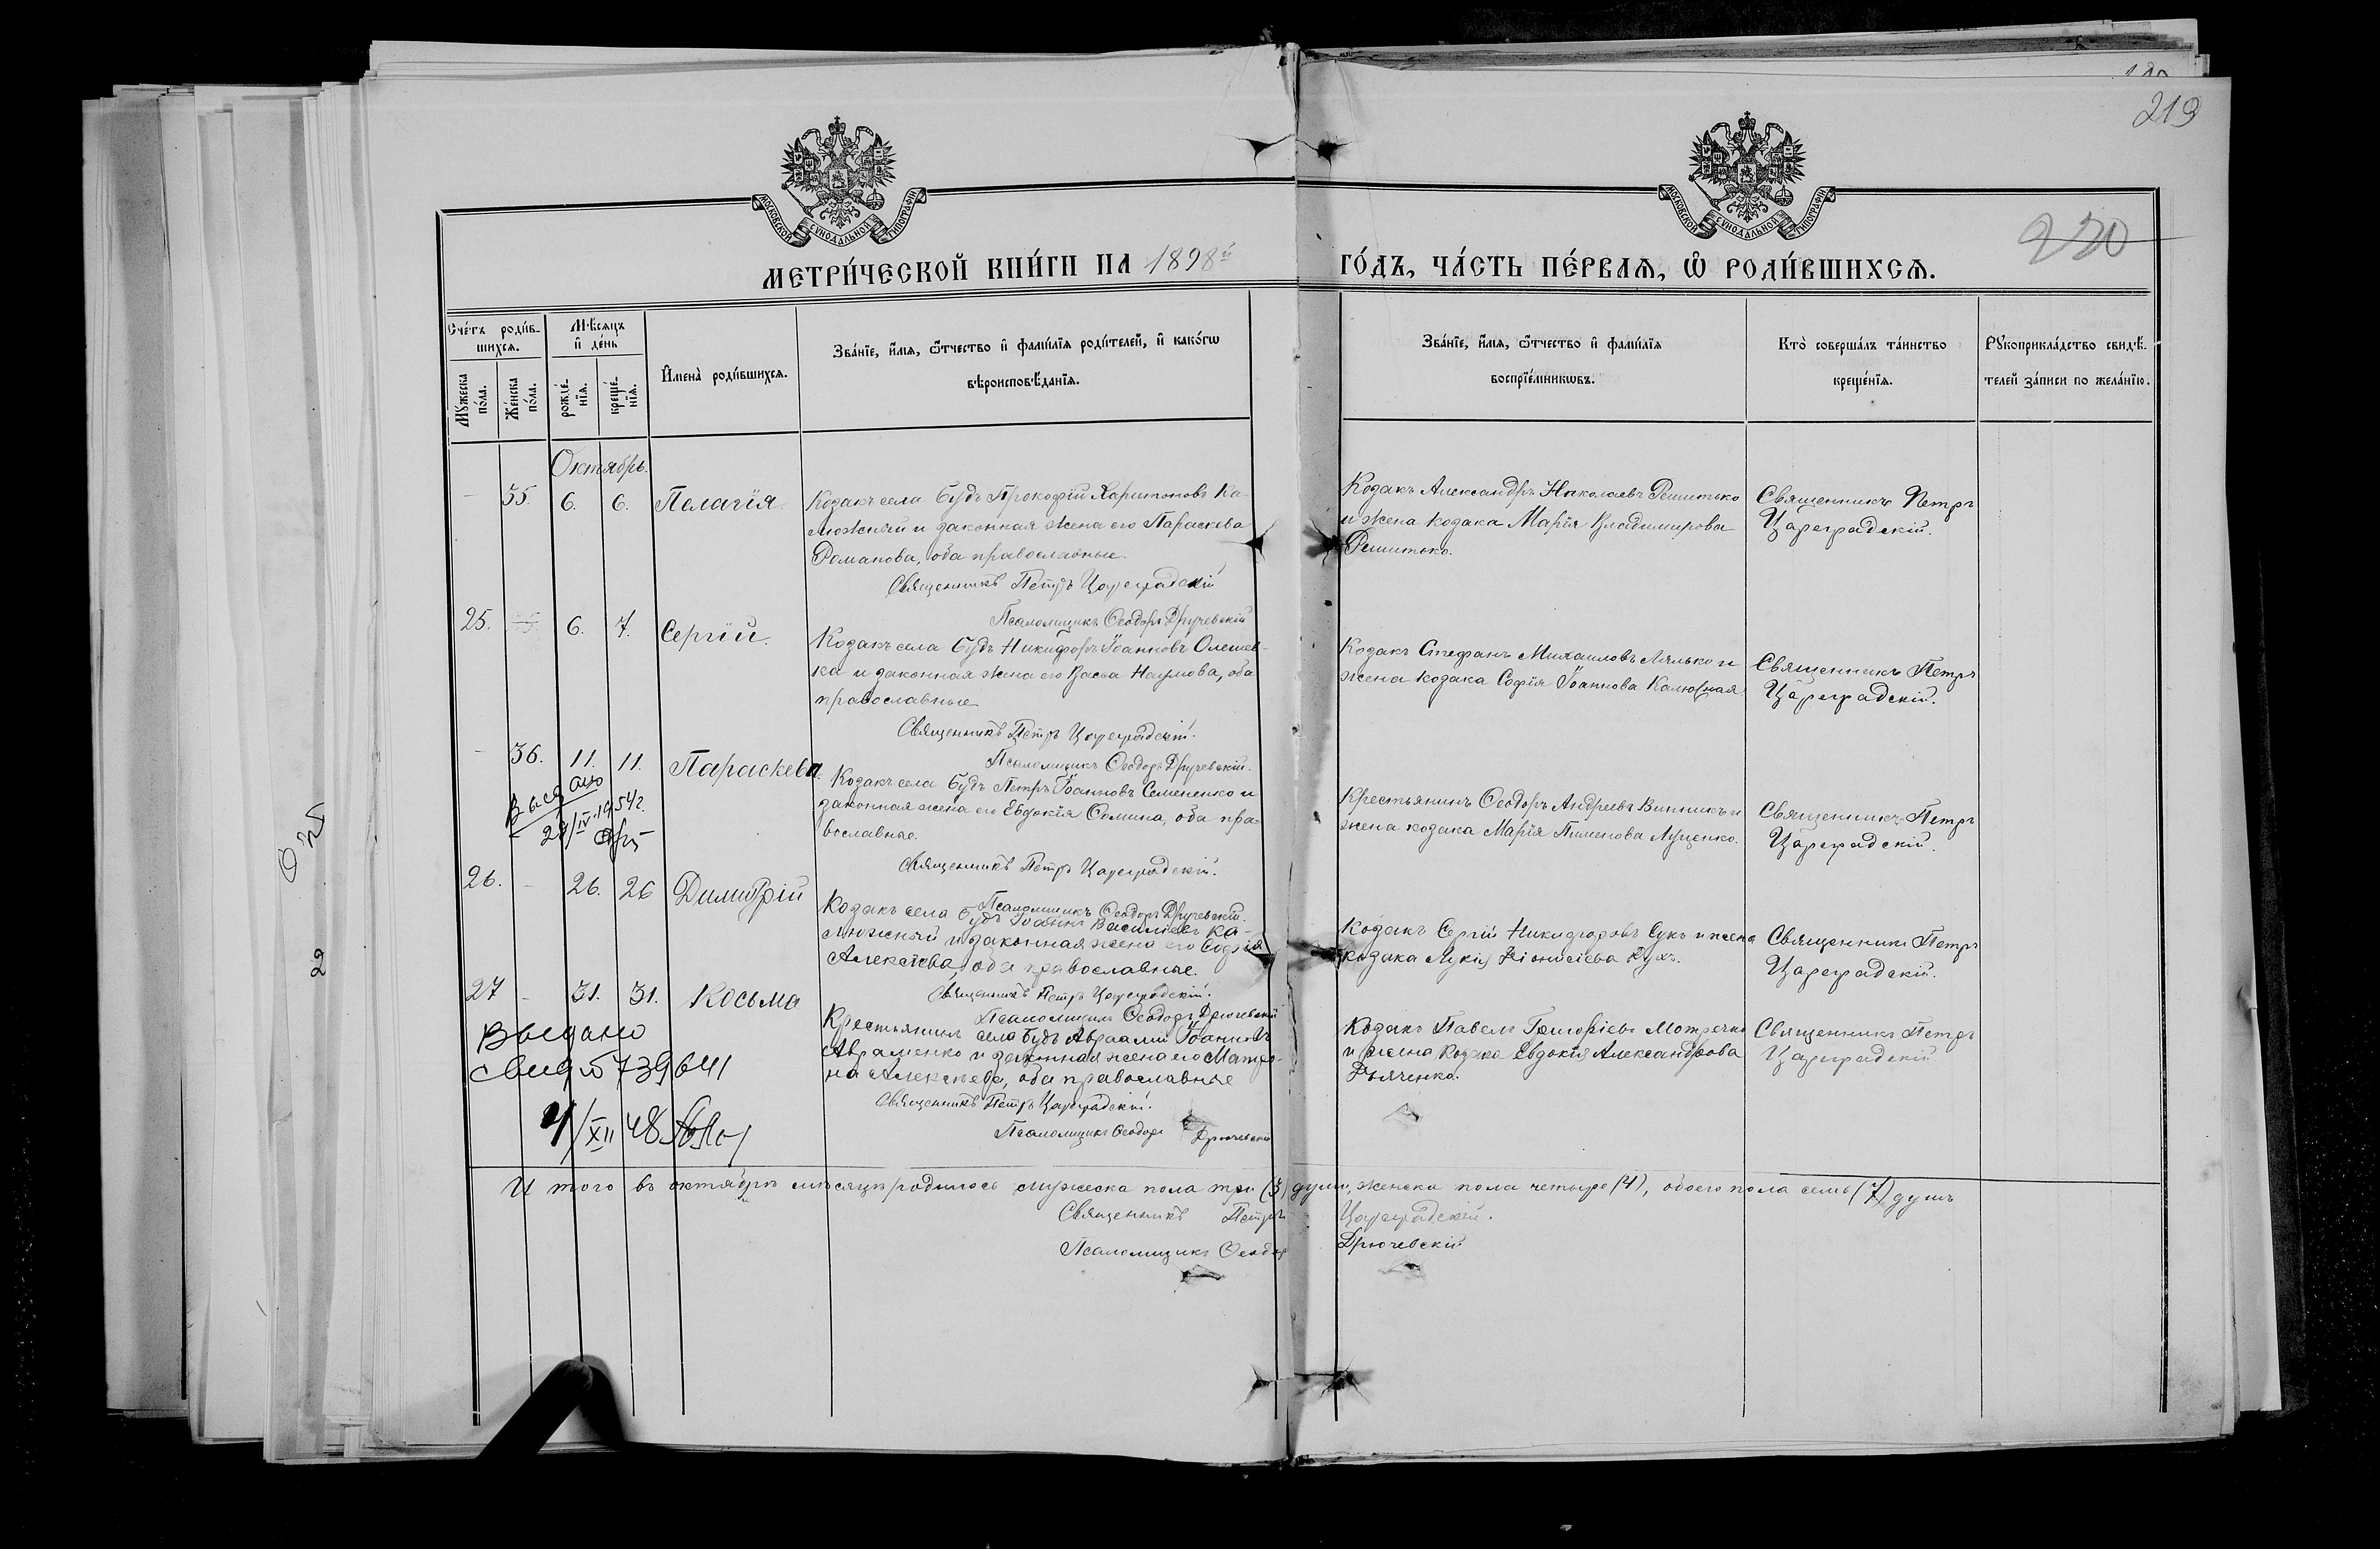 219
230
МОСКОВСКОЙ СѴНОДАЛЬНОЙ ТИПОГРАФІИ
МОСКОВСКОЙ СѴНОДАЛЬНОЙ ТИПОГРАФІИ
МЕТРИ́ЧЕСКОЙ КНИ́ГИ НА 1898й ГО́ДЪ, ЧА́СТЬ ПЕ́РВАѦ, Ѡ РОДИ́ВШИХСѦ.
Сче́тъ роди́в-
шихсѧ.
Мѣ́сѧцъ
и де́нь
Мꙋ́жеска
по́ла.
Же́нска
по́ла.
рожде́-
нїѧ.
креще́-
нїѧ.
Имена̀ роди́вшихсѧ.
Зва́нїе, и́мѧ, ѻ́тчество и фами́лїѧ роди́телей, и како́гѡ
вѣроисповѣ́данїѧ.
Зва́нїе, и́мѧ, ѻ́тчество и фами́лїѧ
воспрїе́мникѡвъ.
Кто̀ соверша́лъ та́инство
креще́нїѧ.
Рꙋкоприкла́дство свидѣ́-
телей за́писи по жела́нїю.
Октябрь.
– 35. 6. 6. Пелагія.
Козакъ села Будъ Прокофій Харитоновъ Ка-
люжный и законная жена его Параскева
Романова, оба православные.
Священникъ Петръ Цареградскій
Псаломщикъ Ѳеодоръ Дрючевскій
Козакъ Александръ Николаевъ Решитько
и жена козака Марія Владимирова
Решитько.
Священникъ Петръ
Цареградскій.
25. 6. 7. Сергій.
Козакъ села Будъ Никифоръ Іоанновъ Олешев-
ка и законная жена его Васса Наумова, оба
православные
Священникъ Петръ Цареградскій.
Псаломщикъ Ѳеодоръ Дрючевскій.
Козакъ Стефанъ Михаиловъ Лялько и
жена козака Софія Іоаннова Калюжная
Священникъ Петръ
Цареградскій.
– 36. 11. 11. Параскева.
Выдано
29/IV.1954г.
Козакъ села Будъ Петръ Іоанновъ Семененко и
законная жена его Евдокія Ѳомина, оба пра-
вославные.
Священникъ Петръ Цареградскій.
Псаломщикъ Ѳеодоръ Дрючевскій.
Крестьянинъ Ѳеодоръ Андреевъ Винникъ и
жена козака Марія Пименова Луценко.
Священникъ Петръ
Цареградскій.
26. – 26. 26 Димитрій
Козакъ села Будъ Іоаннъ Василіевъ Ка-
люжный и законная жена его Софія
Алексіева, оба православные.
Священникъ Петръ Цареградскій.
Псаломщикъ Ѳеодоръ Дрючевскій
Козакъ Сергій Никифоровъ Сукъ и жена
козака Лукія Діонисіева Кухъ.
Священникъ Петръ
Цареградскій.
27 – 31. 31. Косьма
Выдано
свид № 739641
4/XII 48
Крестьянинъ села Будъ Авраамій Іоанновъ
Авраменко и законная жена его Матро-
на Алексіева, оба православные
Священникъ Петръ Цареградскій.
Псаломщикъ Ѳеодоръ Дрючевскій
Козакъ Павелъ Григоріевъ Мотречко
и жена козака Евдокія Александрова
Дьяченко.
Священникъ Петръ
Цареградскій
Итого въ октябрѣ мѣсяцѣ родилось мужеска пола три (3) души, женска пола четыре (4), обоего пола семь (7) душъ
Священникъ Петръ Цареградскій.
Псаломщикъ Ѳеодоръ Дрючевскій